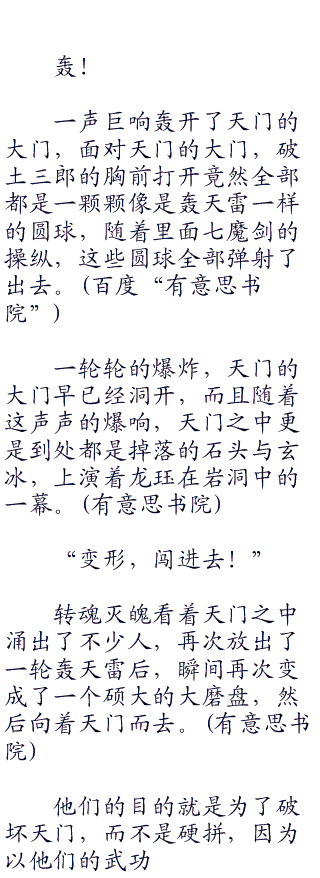 轰！
一声巨响轰开了天门的
大门，面对天门的大门，破
土三郎的胸前打开竟然全部
都是一颗颗像是轰天雷一样
的圆球，随着里面七魔剑的
操纵，这些圆球全部弹射了
出去。(百度“有意思书
院”)
一轮轮的爆炸，天门的
大门早已经洞开，而且随着
这声声的爆响，天门之中更
是到处都是掉落的石头与玄
冰，上演着龙珏在岩洞中的
一幕。(有意思书院)
“变形，闯进去！”
转魂灭魄看着天门之中
涌出了不少人，再次放出了
一轮轰天雷后，瞬间再次变
成了一个硕大的大磨盘，然
后向着天门而去。(有意思书
院)
他们的目的就是为了破
坏天门，而不是硬拼，因为
以他们的武功